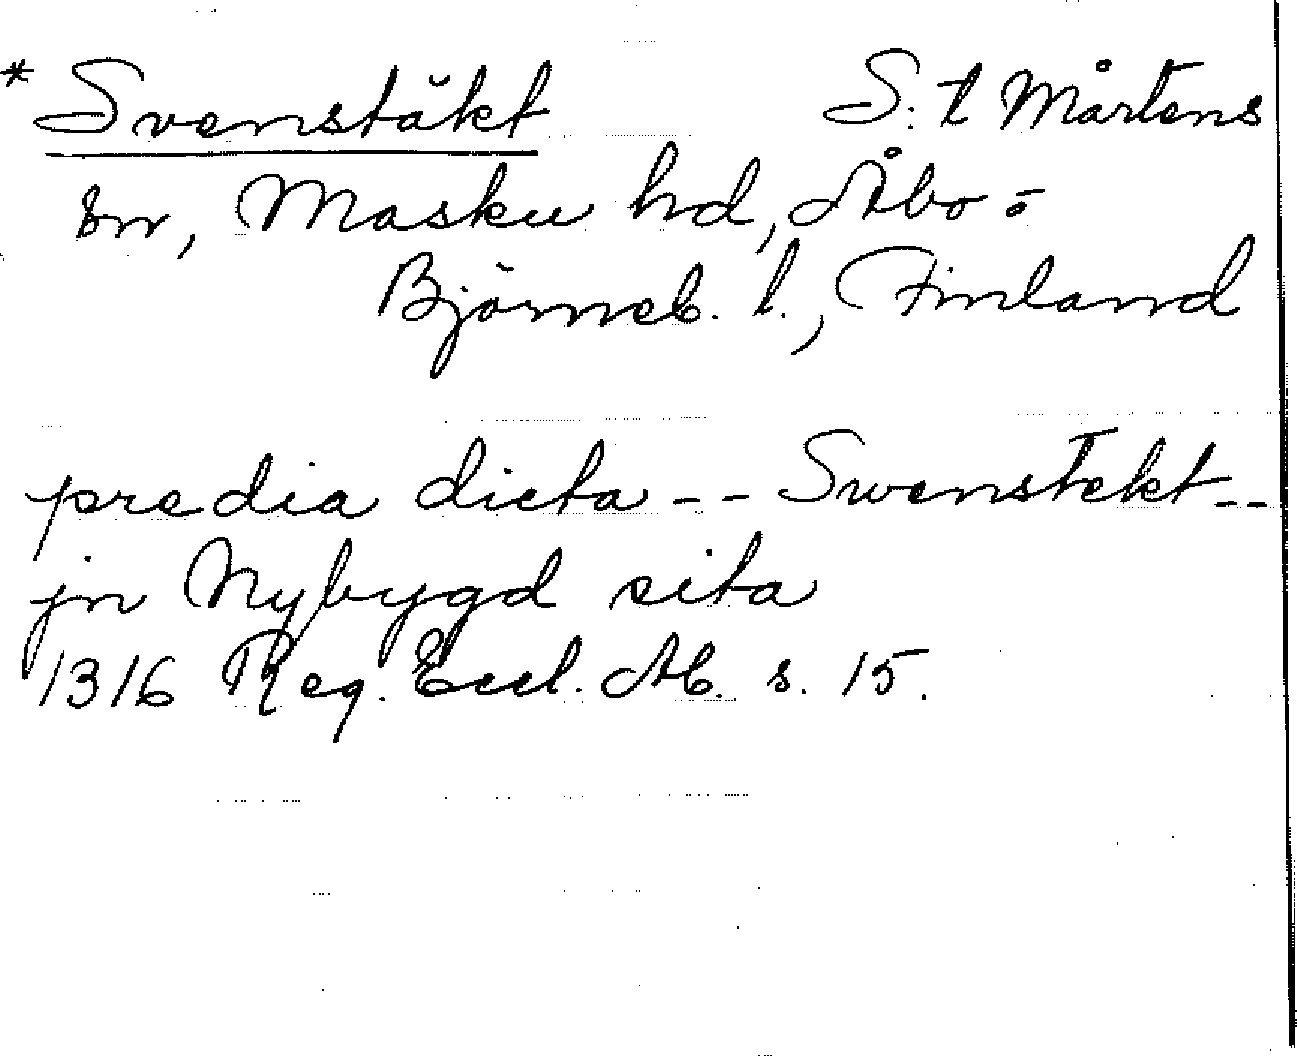 * Svenstäkt S:t Mårtens
sn, Masku hd, Åbo=
Björneb. l., Finland
predia dicta -- Swenstekt --
jn Nybygd sita
1316 Reg. Eccl. Ab. s. 15.